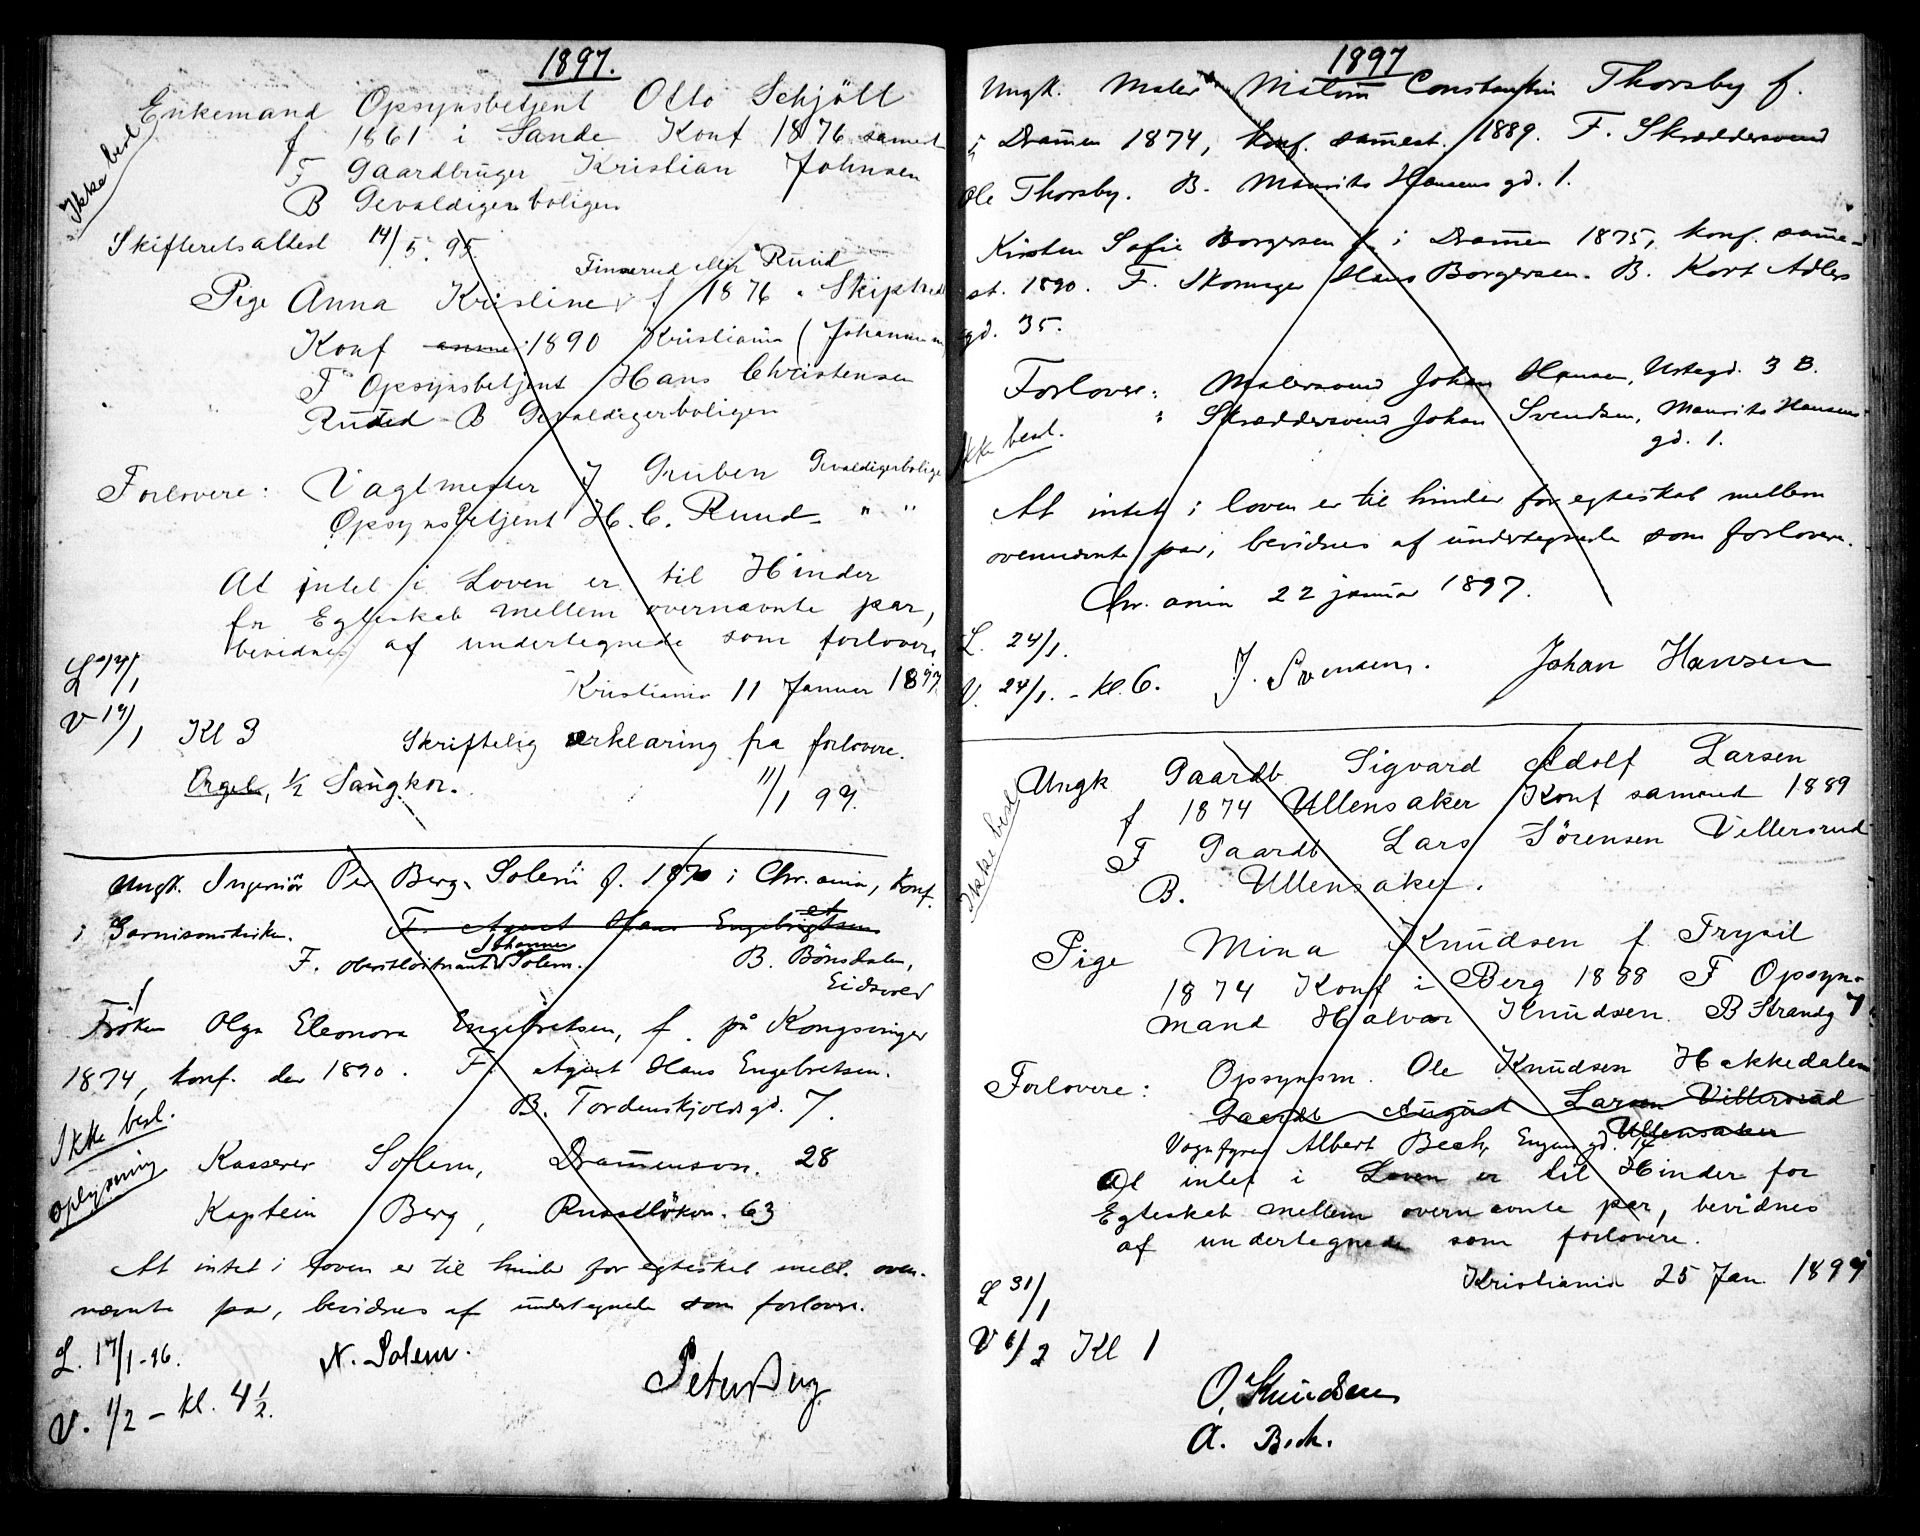 1897.
Enkemand Opsynsbetjent Otto Schjøtt
Ikke besl
f 1861 i Sande Konf 1876 samest
F Gaardbruger Kristian Johnsen
B Gevaldigerboligen
Skifteretsattest 14/5. 95.
Finserud eller Ruud
Pige Anna Kristine f 1876 Skiptvedt
Konf 1890 Kristiania (Johannes
F Opsynsbetjent Hans Christensen
Ruud B Gevaldigerboligen
Forlovere: Vagtmester J Gruben Gevaldigerbolige
Opsynsbetjent H. C. Ruud " "
At intet i Loven er til Hinder
for Egteskab mellem overnævnte par,
bevidnes af undertegnede som forlovere
Kristiania 11 Januar 1897.
L 17/1
V 19/1 Kl 3 Skriftelig erklæring fra forlovere.
Orgel, 1/2 Sangkor. 11/1 97.
Ungk. Ingeniör Per Berg Solem f. 1870 i Chr.ania, konf.
i Garnisonskirken. F. Agent Hans Engebrigtsen
Johannes
F. Oberstløitnant Solem. B. Bönsdalen,
Eidsvold
Fröken Olga Eleonora Engebretsen, f. på Kongsvinger
1874, konf. der 1890. F. Agent Hans Engebretsen.
B. Tordenskjoldsgd. 7.
Ikke besl.
oplysning
Kasserer Solem, Drammensvn. 28
Kaptein Berg, Russelökvn. 63
At intet i loven er til hinder for egteskab mell. oven-
nævnte par, bevidnes af undertegnede som forlovere.
L. 17/1-96. N. Solem. Peter Berg
V. 1/2 – kl. 4 1/2.
1897
Ungk. Maler Constantin Thorsby f.
i Drammen 1874, konf. sammest. 1889. F. Skræddersvend
Ole Thorsby. B. Maurits Hansens gd. 1.
Kirsten Sofie Borgersen f. i Drammen 1875, konf. samme-
st. 1890. F. Skomager Hans Borgersen. B. Kort Adlers
gd. 35.
Forlovere: Malersvend Johan Hansen, Urtegd. 3 B.
" Skræddersvend Johan Svendsen, Maurits Hansens
gd. 1.
Ikke besl.
At intet i loven er til hinder for egteskab mellem
ovennævnte par, bevidnes af undertegnede som forlovere.
Chr.ania 22 januar 1897.
L. 24/1.
V. 24/1. - kl. 6. J. Svensen. Johan Hansen
Ungk Gaardb Sigvard Adolf Larsen
Ikke besl
f 1874 Ullensaker Konf samested 1889
F Gaardb Lars Sörensen Villersrud
B. Ullensaker.
Pige Mina Knudsen f Trysil
1874 Konf i Berg 1888 F Opsyns-
mand Halvor Knudsen B Strandg 7
Forlovere: Opsynsm. Ole Knudsen Hakkedalen
Gaardb August Larsen Villersrud
Ullensaker
Vognfyrer Albert Bech, Engen gd. 14
At intet i Loven er til Hinder for
Egteskab mellem overnævnte par, bevidnes
af undertegnede som forlovere.
Kristiania 25 Jan 1897
L 31/1
V 6/2 Kl 1
O. Knudsen
A. Bech.